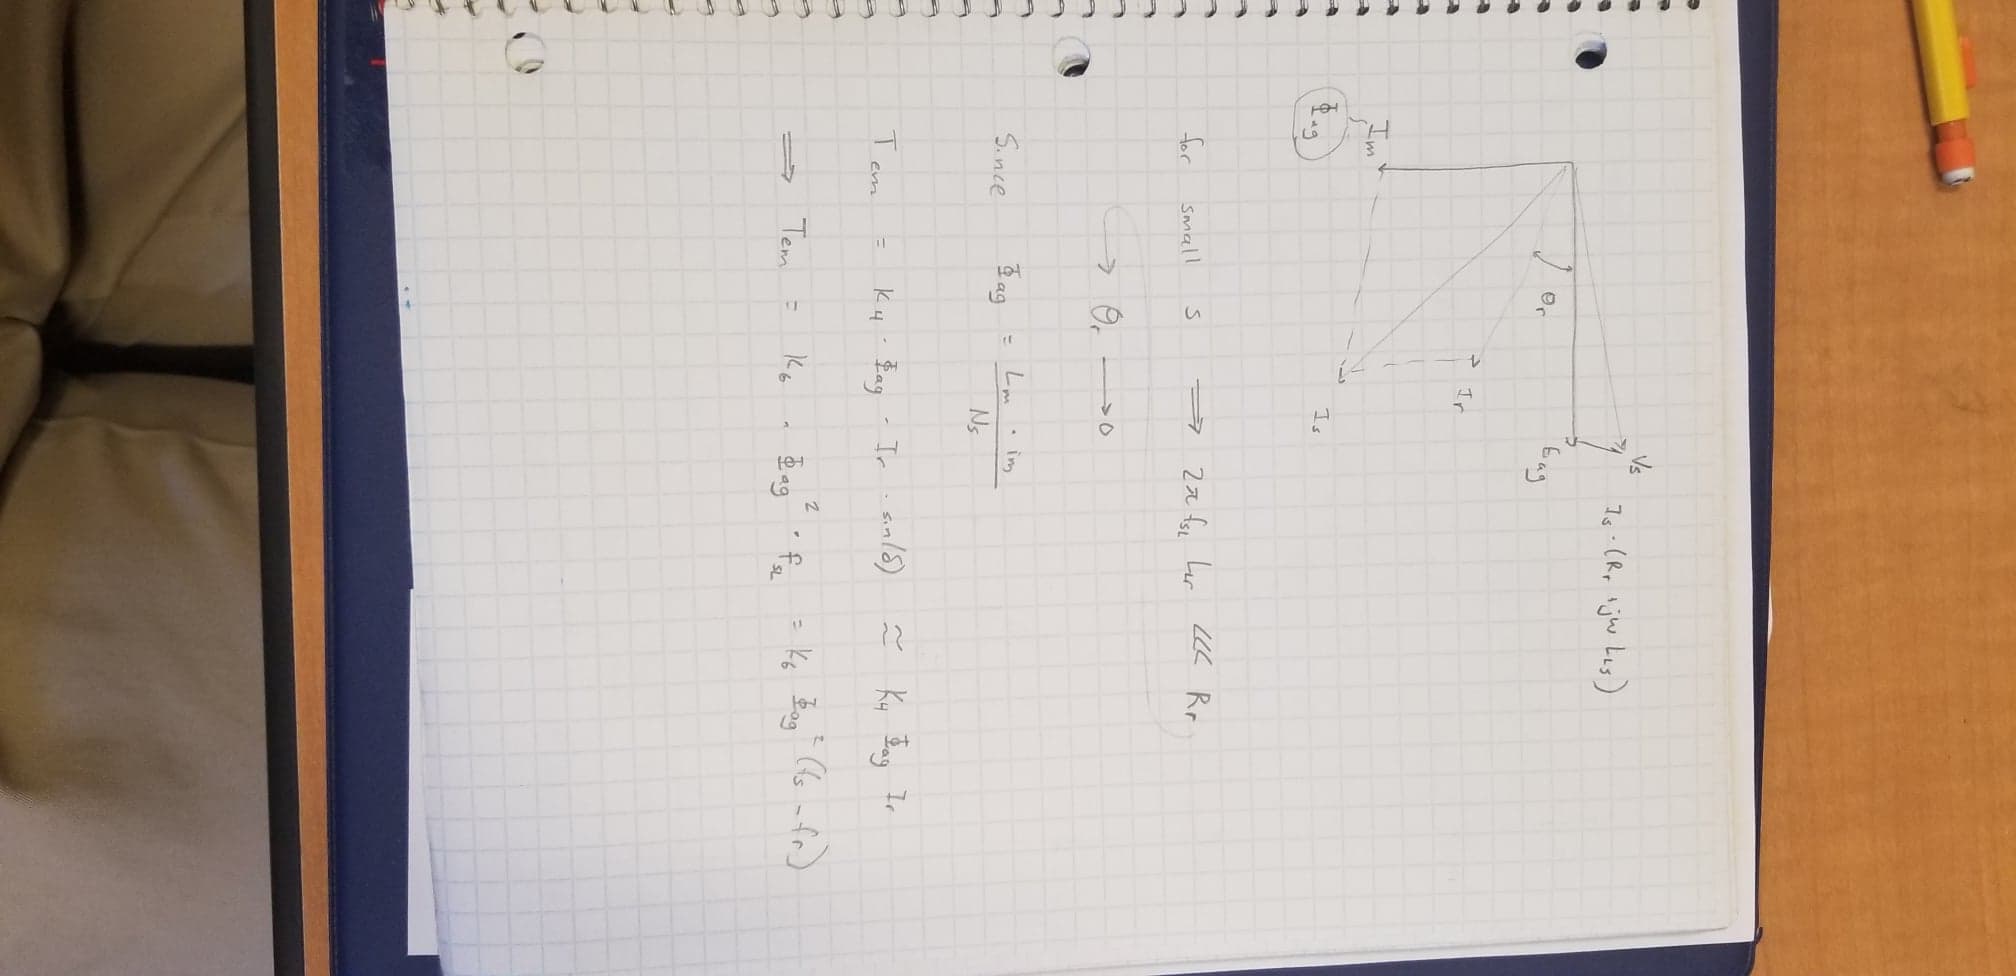 Vs
Is · (Rr + jw LLs)
θr
Eag
Ir
Im
Φag
Is
for small s ⟹ 2π fsL Llr <<< Rr
→ θr → 0
Since Φag = Lm · im / Ns
Tem = K4 · Φag · Ir · sin(δ) ≈ K4 Φag Ir
⟹ Tem = K6 · Φag² · fsL = K6 Φag² (fs - fr)